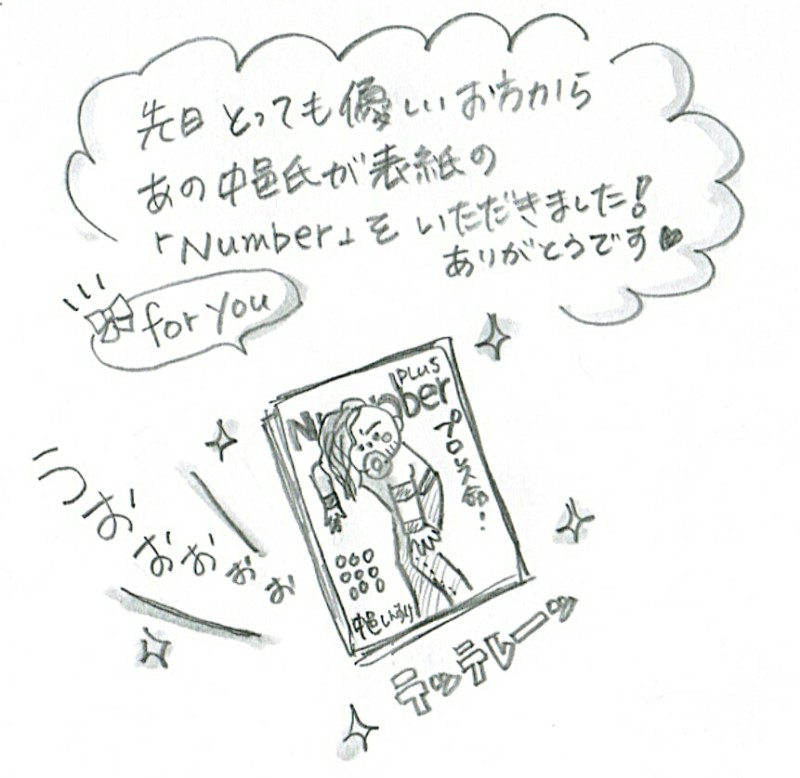 先日 とっても優しいお方から
あの中邑氏が表紙の
「Number」を いただきました!
ありがとうです♥
for you
PLUS
Number
プロレス命!
うおおおおお
000
000
000
中邑しんすけ
テッテレーッ